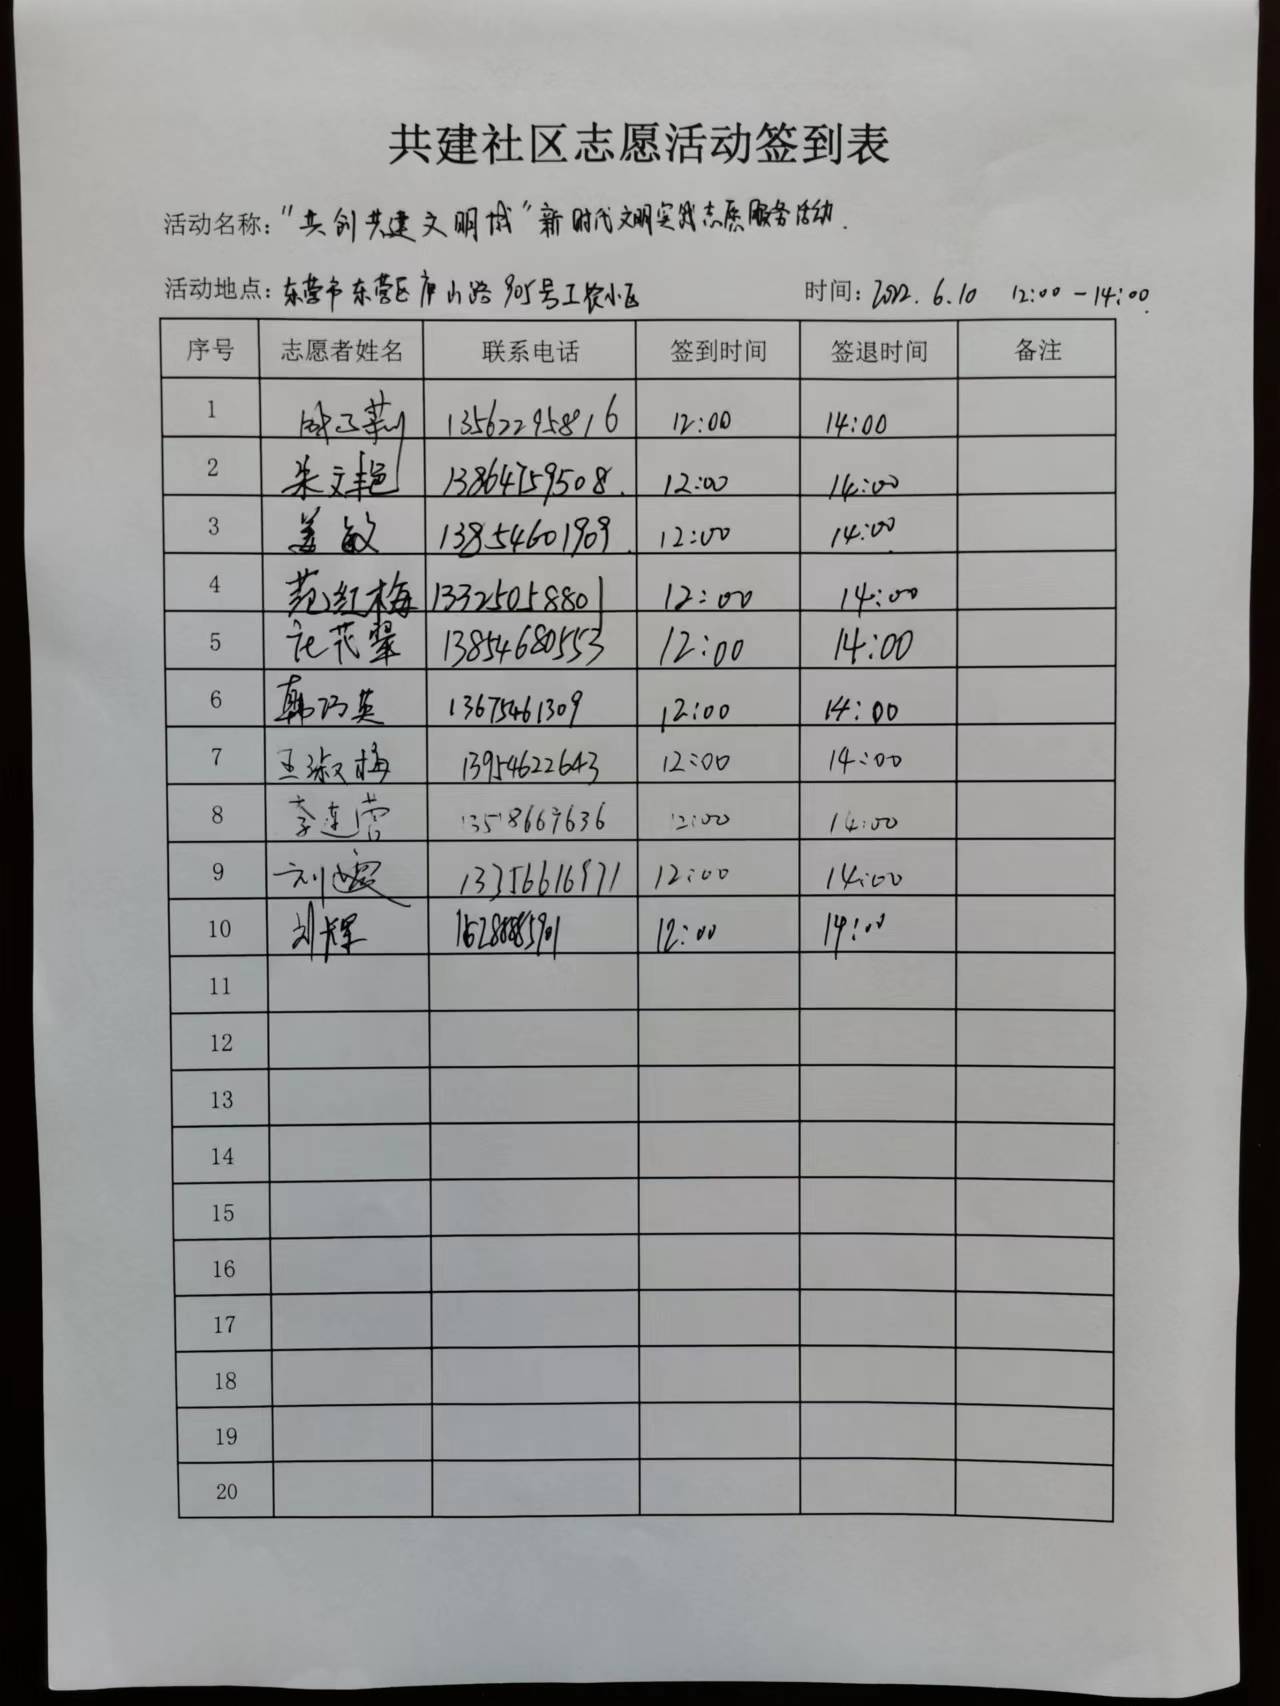 共建社区志愿活动签到表
活动名称："共创共建文明城"新时代文明实践志愿服务活动.
活动地点：东营市东营区庐山路905号工农小区 时间：2022.6.10 12:00-14:00
序号 志愿者姓名 联系电话 签到时间 签退时间 备注
1 13562295816 12:00 14:00
2 朱文艳 13864759508. 12:00 14:00
3 姜敏 13854601909. 12:00 14:00
4 范红梅 13325058801 12:00 14:00
5 13854680553 12:00 14:00
6 韩巧英 13675461309 12:00 14:00
7 王淑梅 13954622643 12:00 14:00
8 李连营 12:00 14:00
9 刘 13356616971 12:00 14:00
10 刘辉 12:00 14:00
11
12
13
14
15
16
17
18
19
20